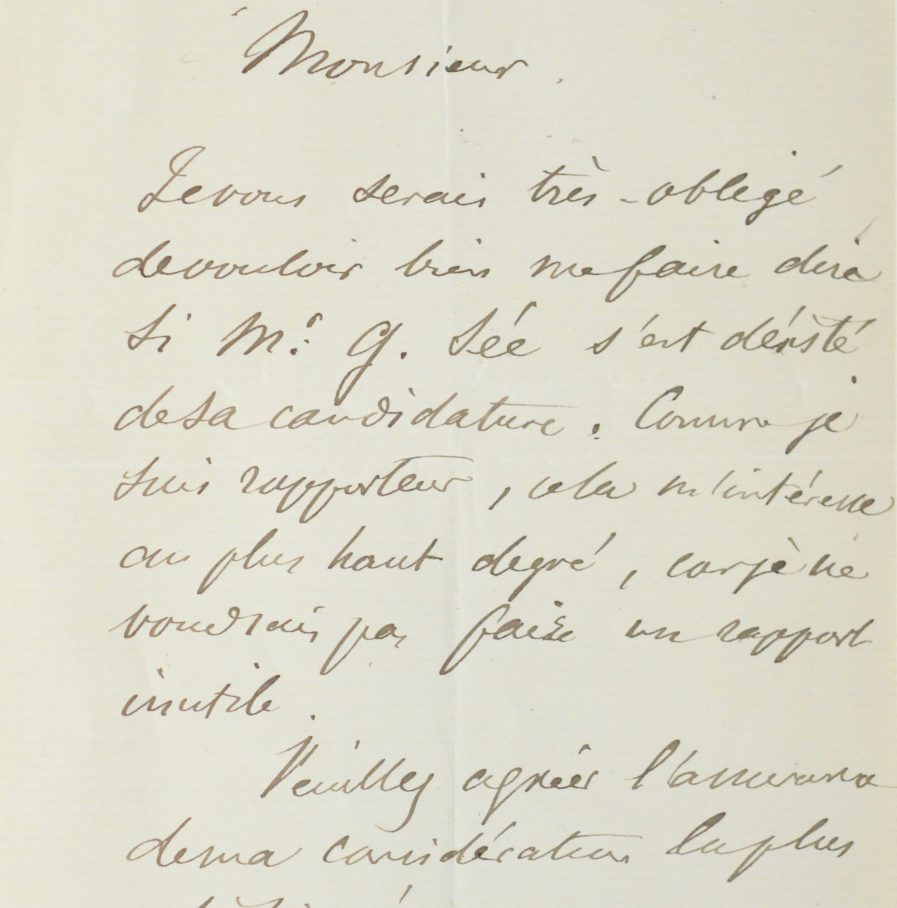 Monsieur
Je vous serais très-obligé
de vouloir bien me faire dire
si Mr. G. Sée s'est désisté
de sa candidature. Comme je
suis rapporteur, cela m'intéresse
au plus haut degré, car je ne
voudrais pas faire un rapport
inutile.
Veuillez agréer l'assurance
de ma considération la plus